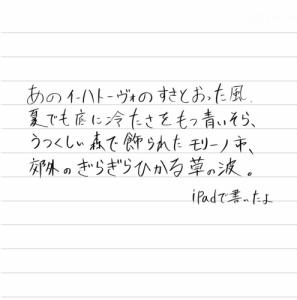 あのイーハトーヴォのすきとおった風、
夏でも底に冷たさをもつ青いそら、
うつくしい森で飾られたモリーノ市、
郊外のぎらぎらひかる草の波。
iPadで書いたよ